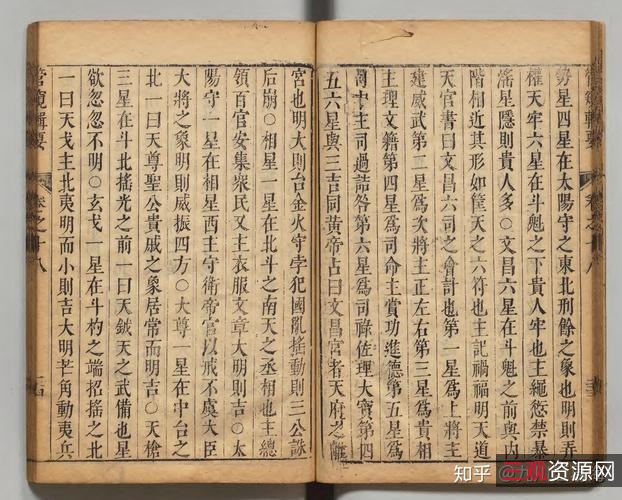 管窺輯要 卷之十八
勢星四星在太陽守之東北刑餘之象也明則弄
權天牢六星在斗魁之下貴人牢也主繩愆禁暴
淫星隱則貴人多○文昌六星在斗魁之前與內
階相近其形如筐天之六符也主記禍福明天道
天官書曰文昌六司之會計也第一星爲上將主
建威武第二星爲次將主正左右第三星爲貴相
主理文籍第四星爲司命主賞功進德第五星爲
司中主司過詰咎第六星爲司祿佐理大寶第四
五六星與三吉同黃帝占曰文昌宮者天府之離
宮也明大則台金火守孛犯國亂搖動則三公誅
后崩○相星一星在北斗之南天之丞相也主總
領百官安集衆民又主衣服文章大明則吉○太
陽守一星在相星西主守衛帝宮以戒不虞大臣
大將之象明則威振四方○大尊一星在中台之
北一曰天尊聖公貴戚之象居常而明吉○天槍
三星在斗北搖光之前一曰天鉞天之武備也星
欲忽忽不明○玄戈一星在斗杓之端招搖之北
一曰天戈主北夷明而小則吉大明芒角動夷兵
管窺輯要 卷之十八
知乎
资源网